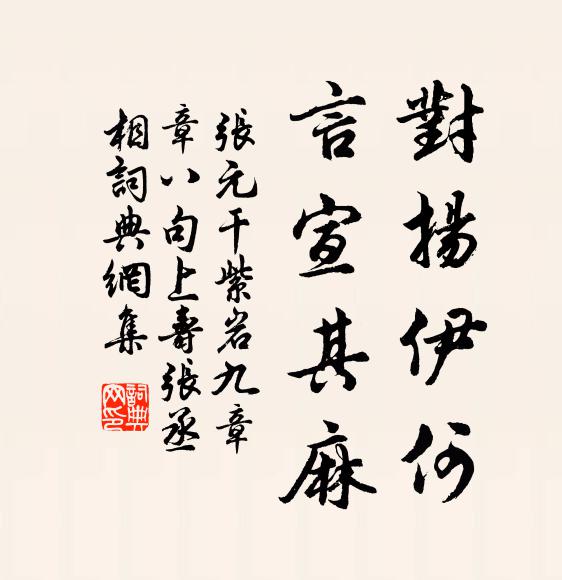 對揚伊何
言宣其麻
張元干紫岩九章
章八句上壽張丞
相詞典網集
詞典網印